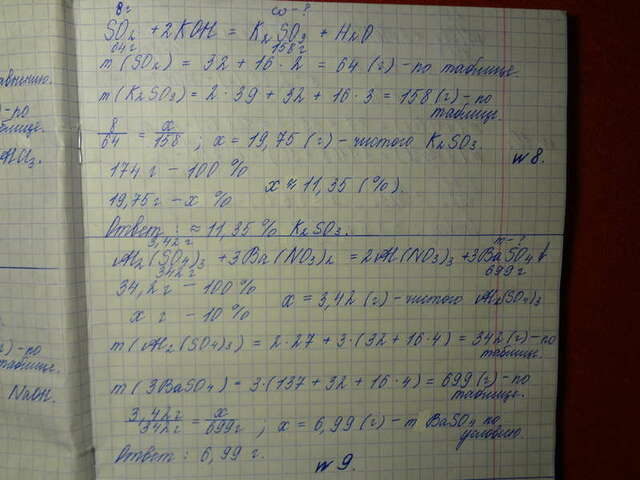 8 г ω-?
SO₂ + 2KOH = K₂SO₃ + H₂O
64г 158г
m(SO₂) = 32 + 16 · 2 = 64 (г) - по таблице.
m(K₂SO₃) = 2 · 39 + 32 + 16 · 3 = 158 (г) - по
таблице.
8/64 = x/158 ; x = 19,75 (г) - чистого K₂SO₃.
174 г - 100 %
19,75 г - x %
x ≈ 11,35 (%).
Ответ : ≈ 11,35 % K₂SO₃.
№ 8.
3,42 г m-?
Al₂(SO₄)₃ + 3Ba(NO₃)₂ = 2Al(NO₃)₃ + 3BaSO₄↓
342г 699г
34,2 г - 100 %
x г - 10 %
x = 3,42 (г) - чистого Al₂(SO₄)₃
m(Al₂(SO₄)₃) = 2 · 27 + 3 · (32 + 16 · 4) = 342 (г) - по
таблице.
m(3BaSO₄) = 3 · (137 + 32 + 16 · 4) = 699 (г) - по
таблице.
3,42 г/342 г = x/699 г ; x = 6,99 (г) - m BaSO₄ по
условию.
Ответ : 6,99 г.
№ 9.
) - по
) - по
NaOH.